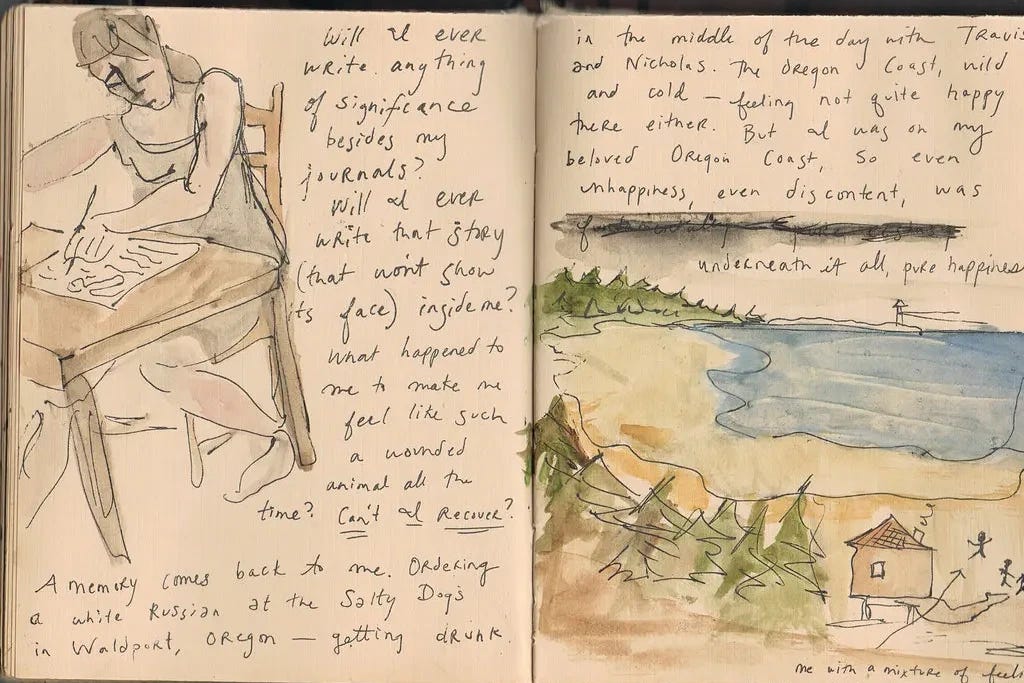 Will I ever
write anything
of significance
besides my
journals?
Will I ever
write that story
(that won't show
its face) inside me?
What happened to
me to make me
feel like such
a wounded
animal all the
time? Can't I Recover?
A memory comes back to me. Ordering
a white Russian at the Salty Dog's
in Waldport, Oregon — getting drunk.
in the middle of the day with Travis
and Nicholas. The Oregon Coast, wild
and cold — feeling not quite happy
there either. But I was on my
beloved Oregon Coast, so even
unhappiness, even discontent, was
underneath it all, pure happines
me with a mixture of feeli